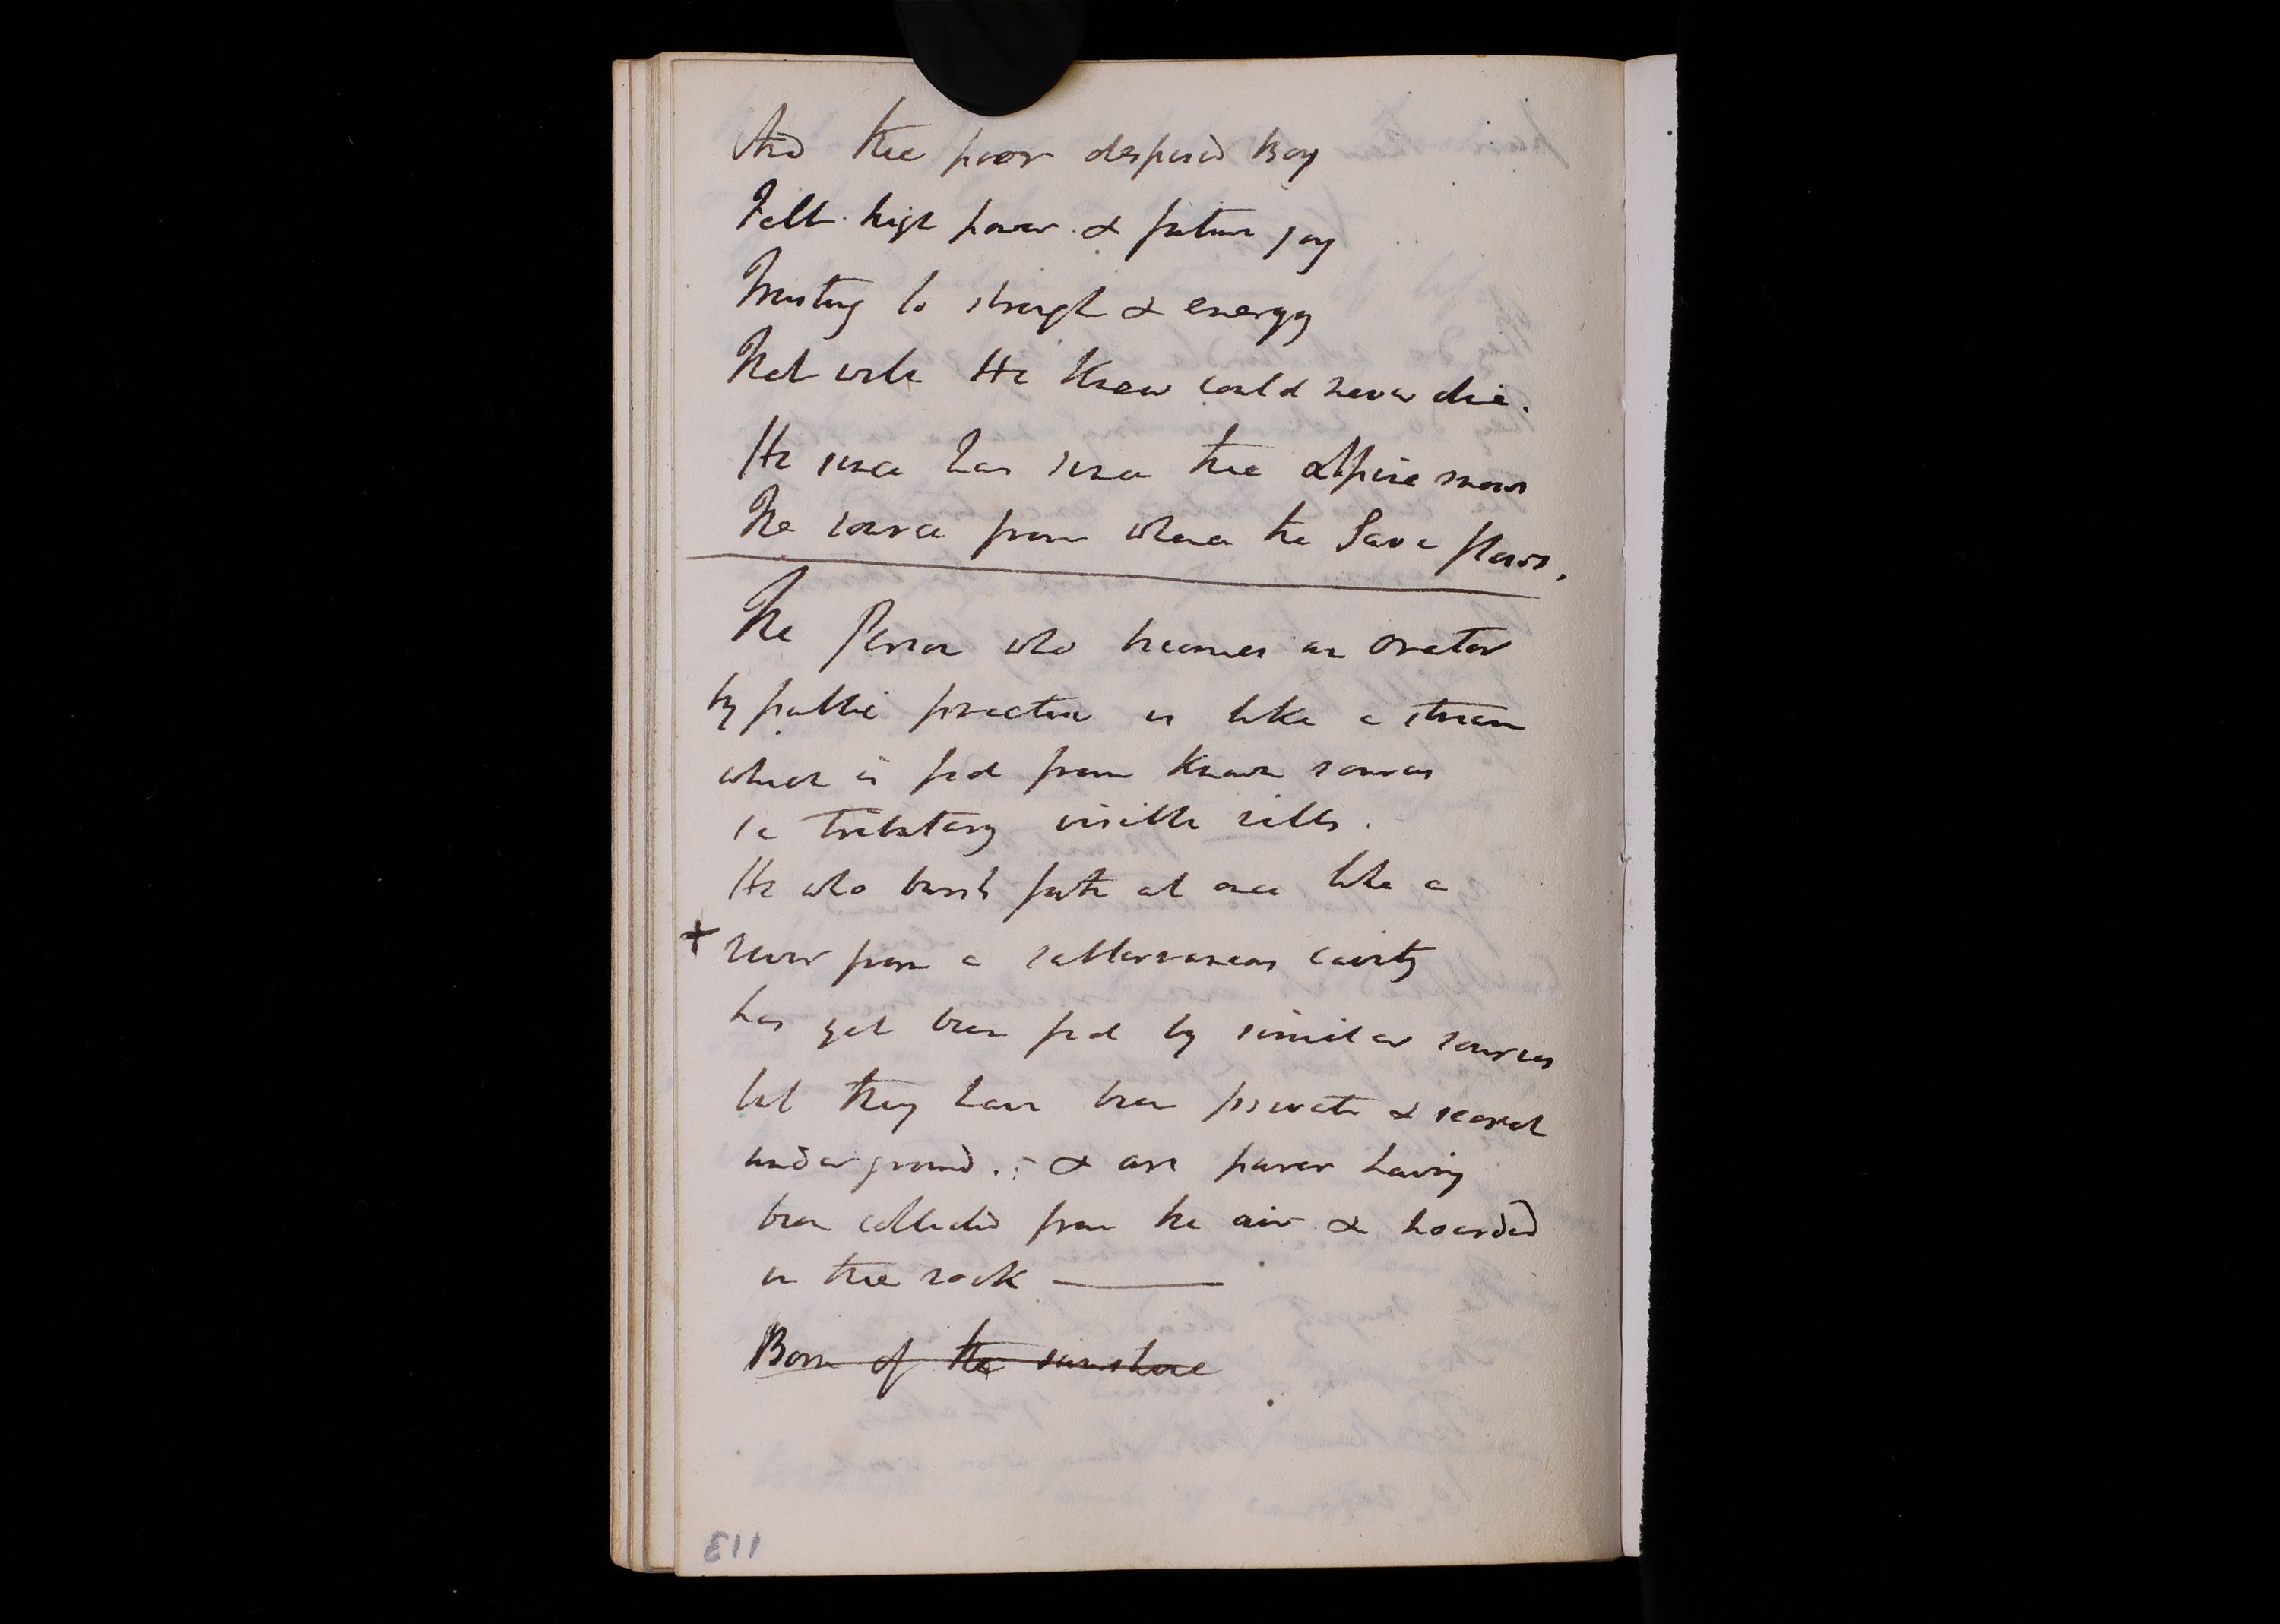 And the poor despised Boy
Felt high power & future joy
Trusting to strength & energy
That wh he knew could never die.
He since has seen the Alpine snows
The source from whence the Save flows.
The Person who becomes an orator
by public practice is like a stream
which is fed from known sources
ie tributary visible rills.
He who bursts forth at once like a
+ river from a subterranean cavity
has yet been fed by similar sources
but they have been private & secret
under ground. :- & are purer having
been collected from the air & hoarded
in the rock ———
Born of the sunshine
113